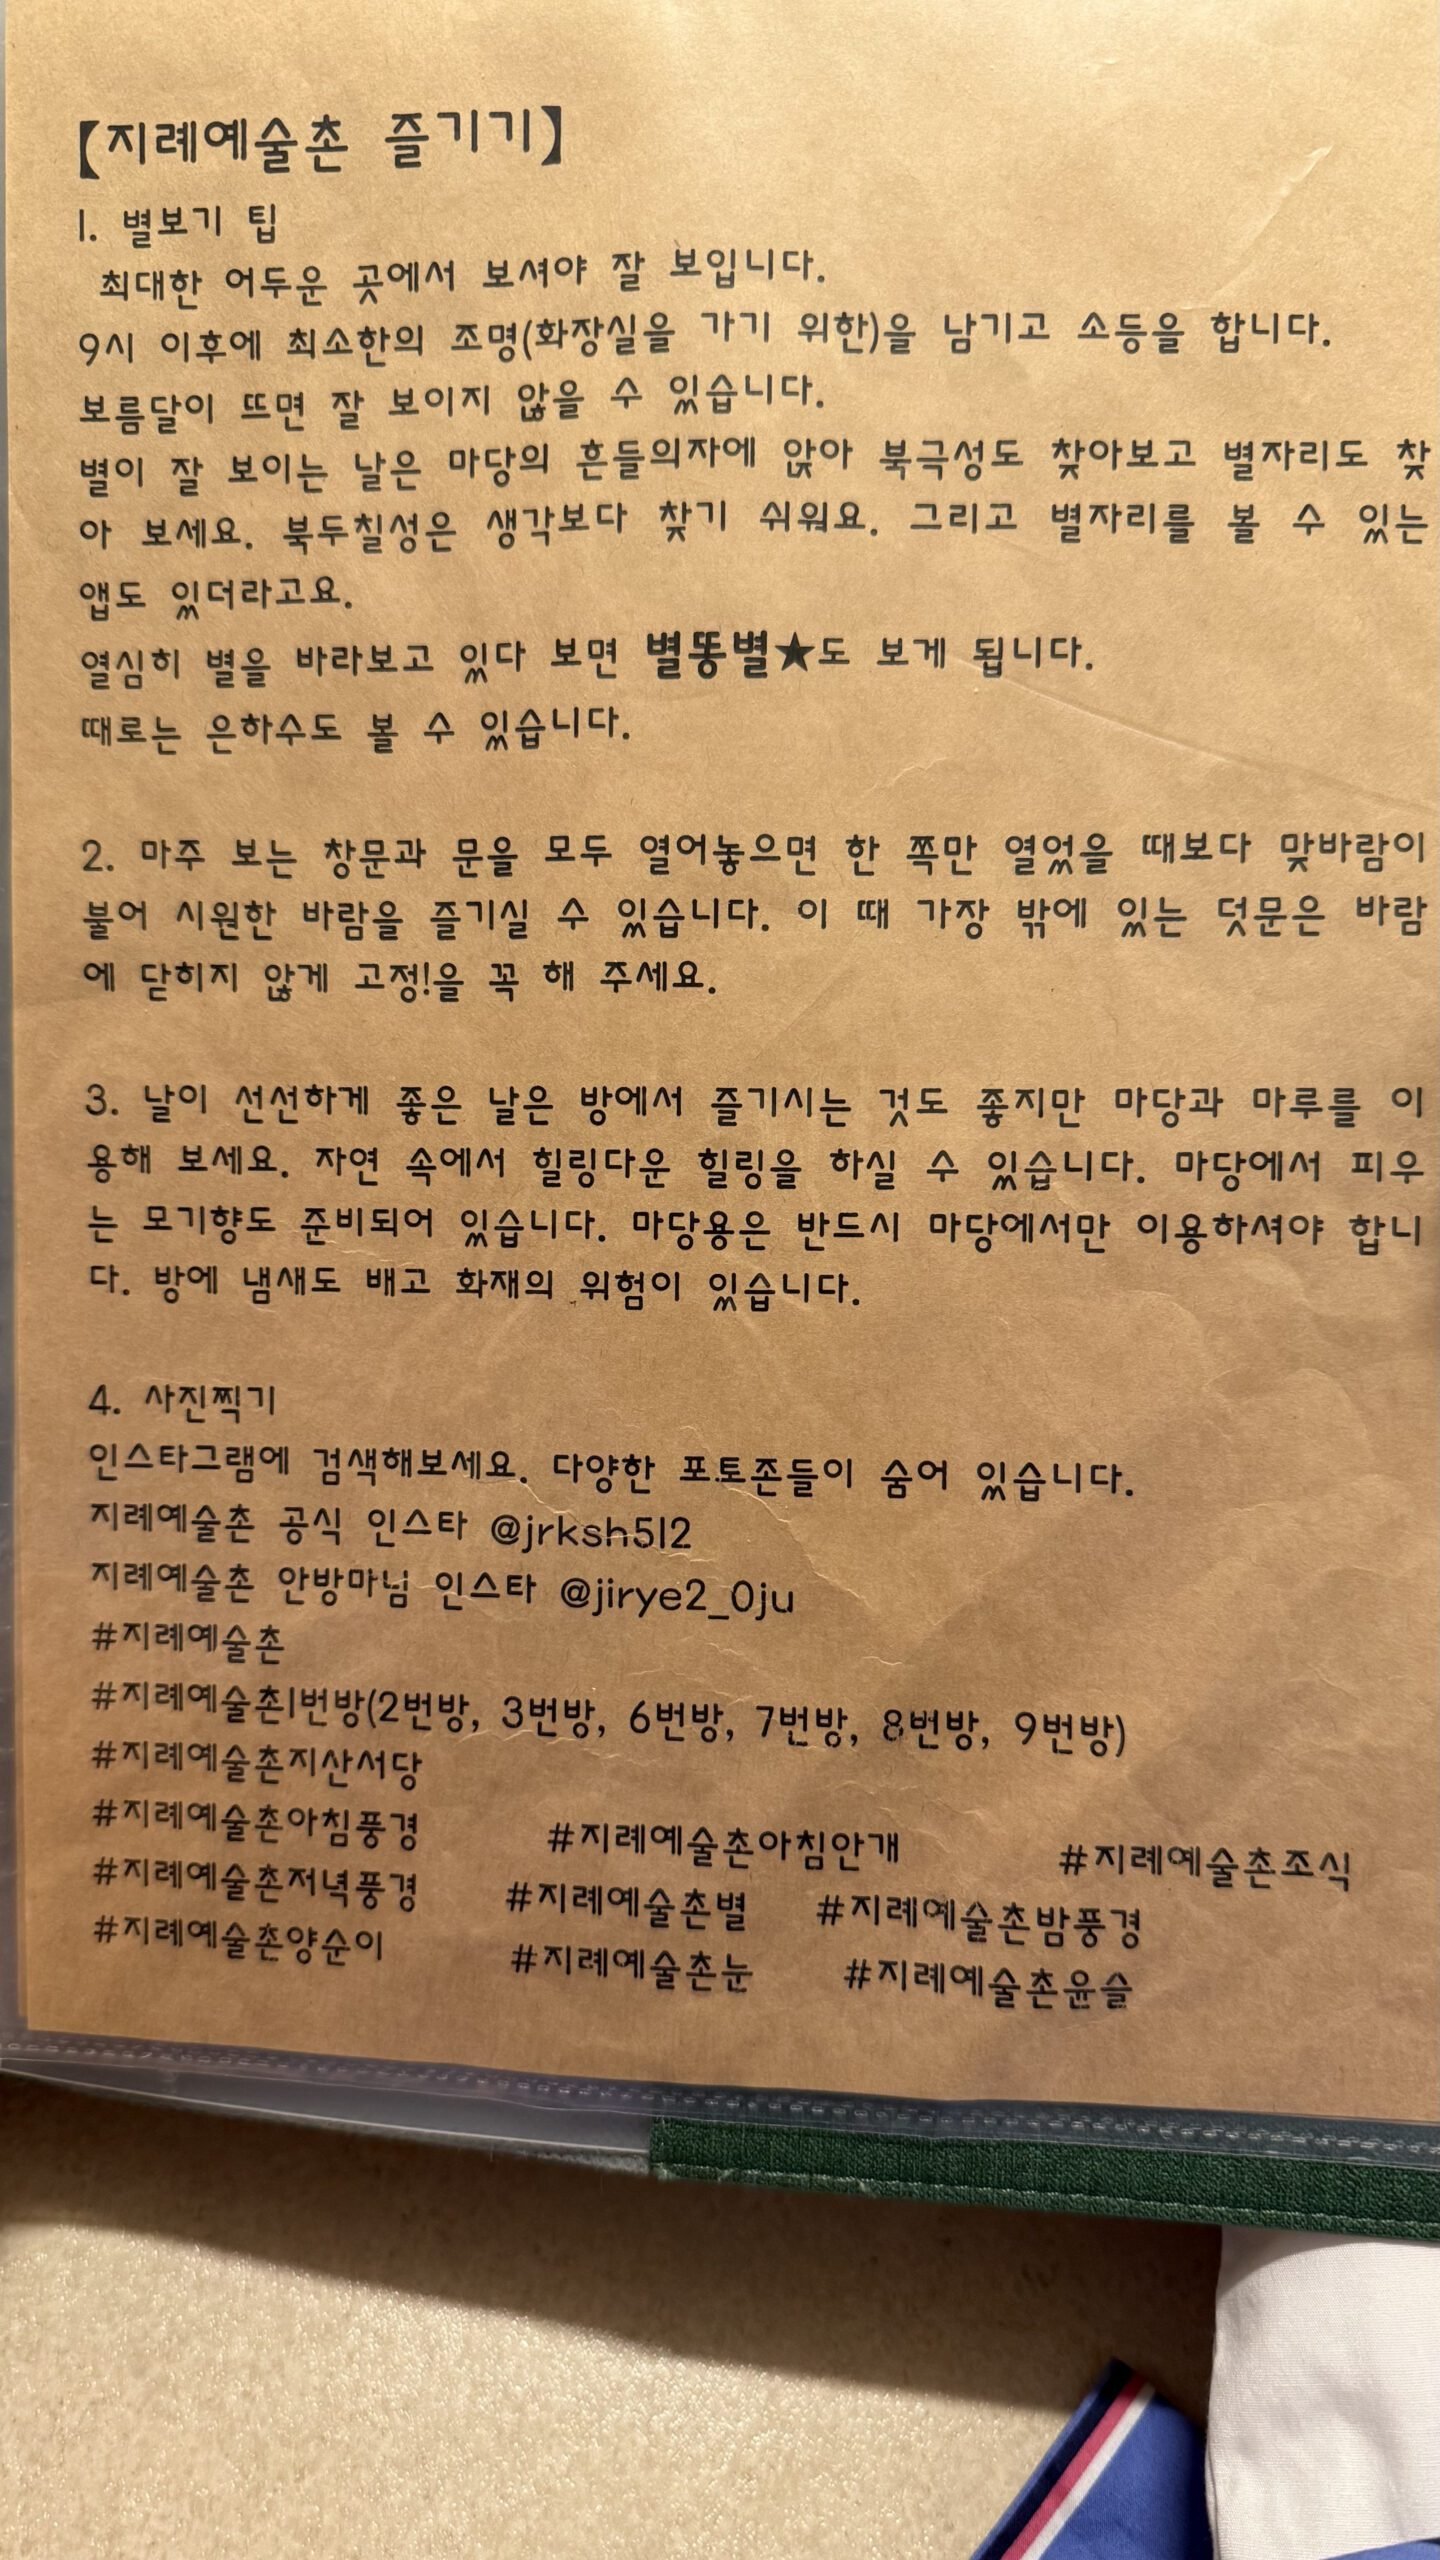 【지례예술촌 즐기기】
1. 별보기 팁
최대한 어두운 곳에서 보셔야 잘 보입니다.
9시 이후에 최소한의 조명(화장실을 가기 위한)을 남기고 소등을 합니다.
보름달이 뜨면 잘 보이지 않을 수 있습니다.
별이 잘 보이는 날은 마당의 흔들의자에 앉아 북극성도 찾아보고 별자리도 찾
아 보세요. 북두칠성은 생각보다 찾기 쉬워요. 그리고 별자리를 볼 수 있는
앱도 있더라고요.
열심히 별을 바라보고 있다 보면 별똥별★도 보게 됩니다.
때로는 은하수도 볼 수 있습니다.
2. 마주 보는 창문과 문을 모두 열어놓으면 한 쪽만 열었을 때보다 맞바람이
불어 시원한 바람을 즐기실 수 있습니다. 이 때 가장 밖에 있는 덧문은 바람
에 닫히지 않게 고정!을 꼭 해 주세요.
3. 날이 선선하게 좋은 날은 방에서 즐기시는 것도 좋지만 마당과 마루를 이
용해 보세요. 자연 속에서 힐링다운 힐링을 하실 수 있습니다. 마당에서 피우
는 모기향도 준비되어 있습니다. 마당용은 반드시 마당에서만 이용하셔야 합니
다. 방에 냄새도 배고 화재의 위험이 있습니다.
4. 사진찍기
인스타그램에 검색해보세요. 다양한 포토존들이 숨어 있습니다.
지례예술촌 공식 인스타 @jrksh512
지례예술촌 안방마님 인스타 @jirye2_0ju
#지례예술촌
#지례예술촌1번방(2번방, 3번방, 6번방, 7번방, 8번방, 9번방)
#지례예술촌지산서당
#지례예술촌아침풍경 #지례예술촌아침안개 #지례예술촌조식
#지례예술촌저녁풍경 #지례예술촌별 #지례예술촌밤풍경
#지례예술촌양순이 #지례예술촌눈 #지례예술촌윤슬